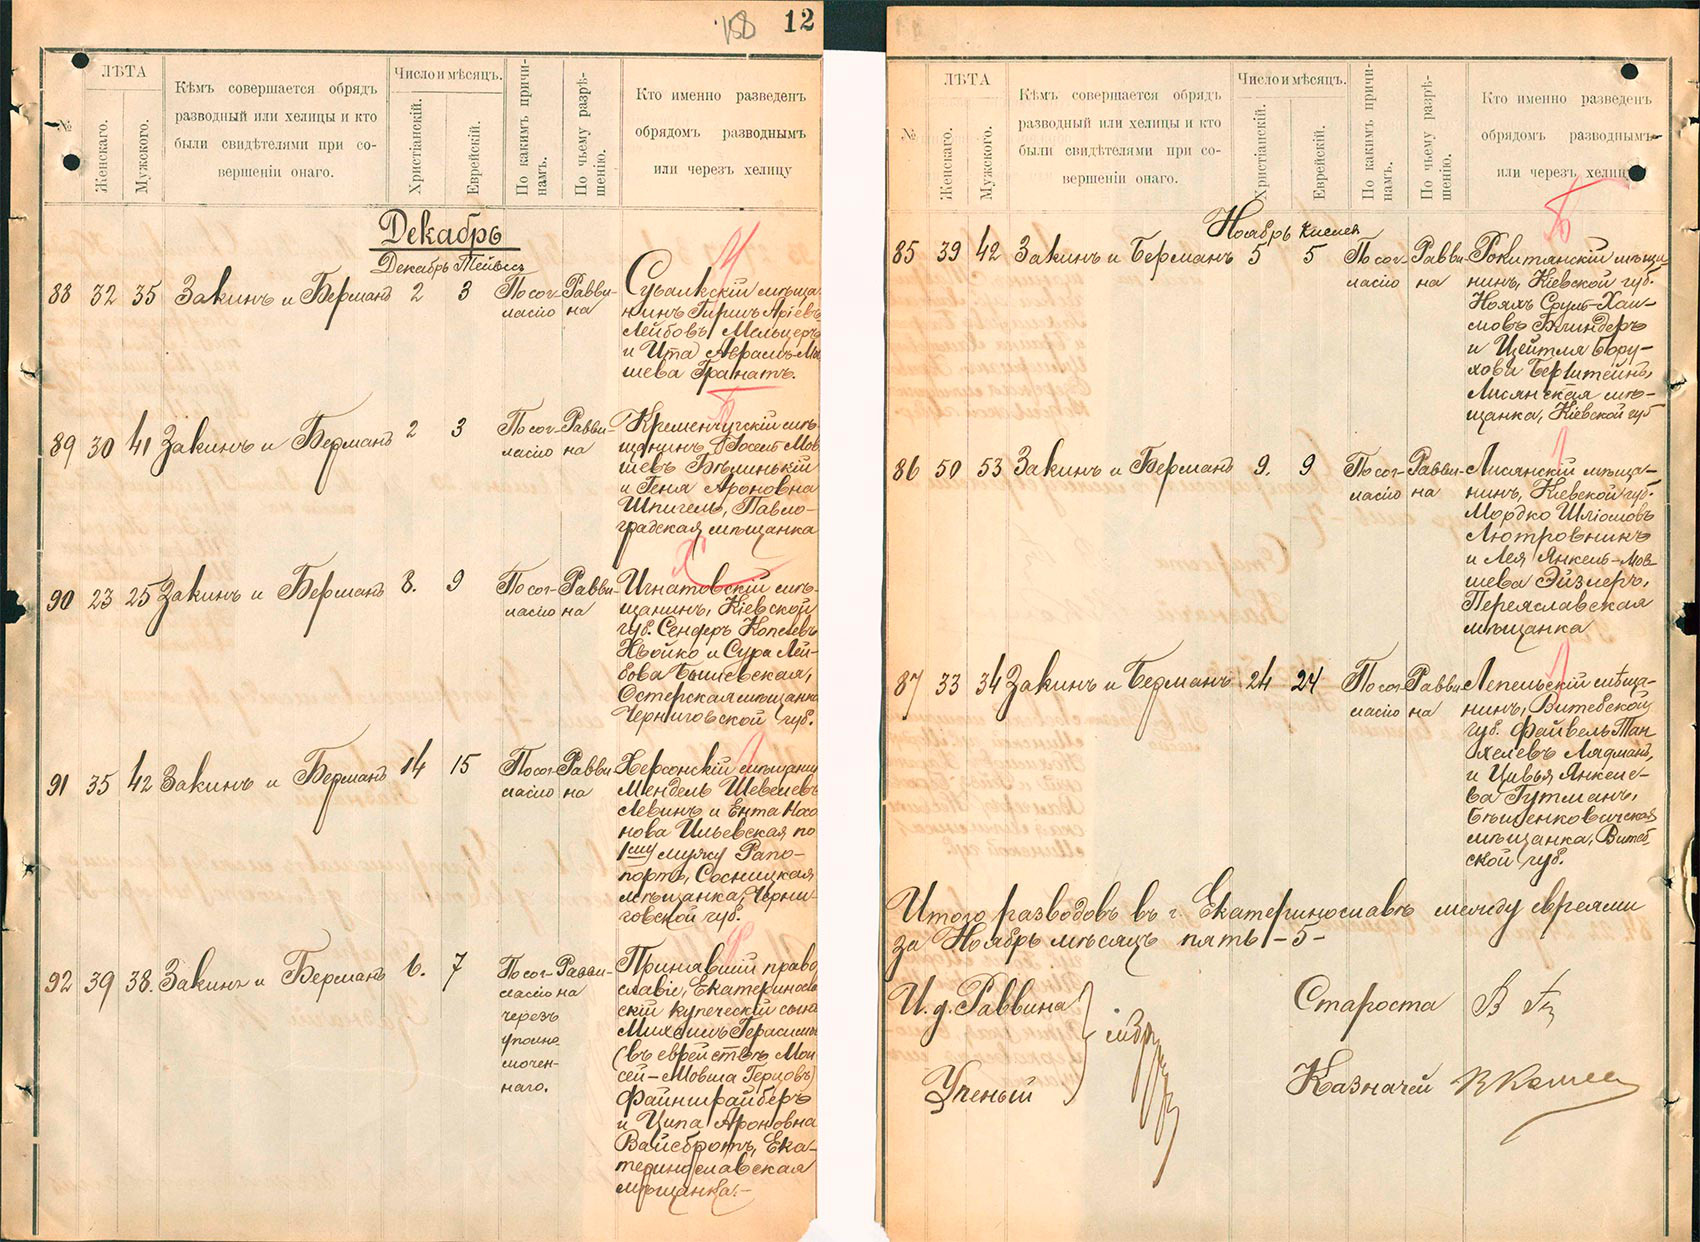 158 12
№
ЛѢТА
Женскаго.
Мужского.
Кѣмъ совершается обрядъ
разводный или хелицы и кто
были свидѣтелями при со-
вершеніи онаго.
Число и мѣсяцъ.
Христіанскій.
Еврейскій.
По какимъ причи-
намъ.
По чьему разрѣ-
шенію.
Кто именно разведенъ
обрядомъ разводнымъ
или черезъ хелицу
Декабрь
Декабрь Тейвесъ
88 32 35 Закинъ и Берманъ 2 3
По сог-
ласію
Равви-
на
Сувалкскій мѣща-
нинъ Гиршъ Аріевъ
Лейбовъ Мальцеръ
и Ита Аврамъ-Мо
шева Гранатъ.
89 30 41 Закинъ и Берманъ 2 3
По сог-
ласію
Равви-
на
Кременчугскій мѣ-
щанинъ Іосель Мов
шевъ Бѣлинькій
и Геня Ароновна
Шпигель, Павло-
градская мѣщанка
90 23 25 Закинъ и Берманъ 8. 9
По сог-
ласію
Равви-
на
Игнатовскій мѣ-
щанинъ, Кіевской
губ. Сендеръ Копелевъ
Квойко и Сура Лей-
бова Бышевская,
Остерская мѣщанка
Черниговской губ.
91 35 42 Закинъ и Берманъ 14 15
По сог-
ласію
Равви-
на
Херсонскій мѣщанин
Мендель Шевелевъ
Левинъ и ЕнтаНосо
нова Ильевская по
1му мужу Рапо-
портъ, Сосницкая
мѣщанка, Черни-
говской губ.
92 39 38. Закинъ и Берманъ 6. 7
По сог-
ласію
черезъ
уполно
мочен-
наго.
Равви-
на
Принявшій право
славіе, Екатериносла
скій купеческій сынъ
Михаилъ Герасимов
(въ еврействѣ Мои
сей-Мовша Герцовъ)
Файншрайберъ
и Ципа Ароновна
Вайсбротъ, Ека-
теринославская
мѣщанка.-
№
ЛѢТА
Женскаго.
Мужского.
Кѣмъ совершается обрядъ
разводный или хелицы и кто
были свидѣтелями при со-
вершеніи онаго.
Число и мѣсяцъ.
Христіанскій.
Еврейскій.
По какимъ причи-
намъ.
По чьему разрѣ-
шенію.
Кто именно разведенъ
обрядомъ разводнымъ
или черезъ хелицу
Ноябрь Кислев
85 39 42 Закинъ и Берманъ 5 5
По сог-
ласію
Равви-
на
Рокитянскій мѣща-
нинъ, Кіевской губ.
Нояхъ Сруль-Хаи-
мовъ Блиндеръ
и Цейтля Бору-
хова Берштейнъ,
Лисянская мѣ-
щанка, Кіевской губ
86 50 53 Закинъ и Берманъ 9. 9
По сог-
ласію
Равви-
на
Лисянскій мѣща-
нинъ, Кіевской губ.
Мордко Шліомовъ
Лютровникъ
и Лея Янкель-Мов
шева Эйзлеръ,
Переяславская
мѣщанка
87 33 34 Закинъ и Берманъ 24 24
По сог
ласію
Равви
на
Лепельскій мѣща-
нинъ, Витебской
губ. Файвель Тан
хелевъ Лядманъ,
и Цивья Янкеле-
ва Гутманъ,
Бѣшенковичская
мѣщанка, Витеб
ской губ.
Итого разводовъ въ г. Екатеринославѣ между евреями
за Ноябрь мѣсяцъ пять -5-
И. д. Раввина
Ученый
Староста
Казначей